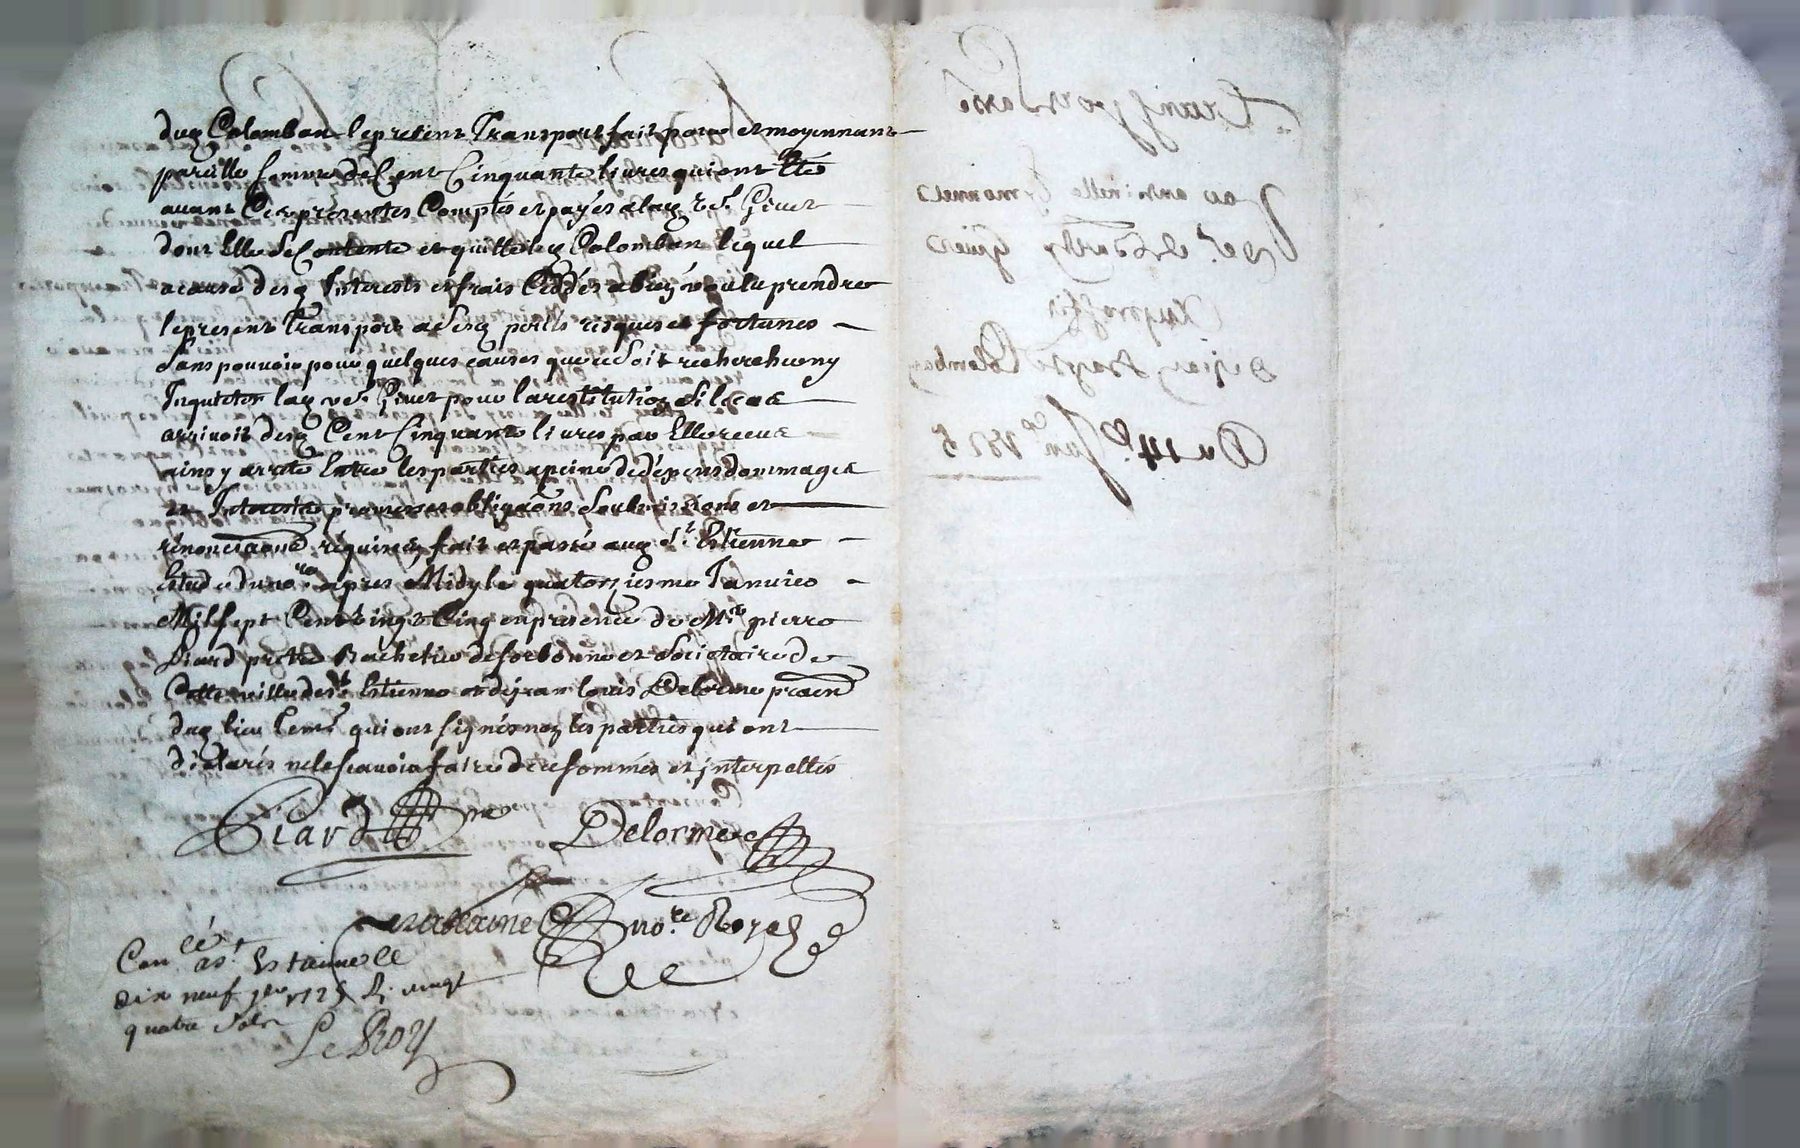 dud Colomban le present Transport fait pour et moyennant
pareille somme de Cent Cinquante livres qui ont Eté
avant Ces présentes Comptés et payés a lad ve. Giuet
dont Elle se Contente et quitte led Colomban lequel
a cause desd Interests et frais Ceddés a bien voulu prendre
le present Transport a sesd perils risques et fortunes
sans pouvoir pour quelques causes que ce soit rechercher ny
Inquieter lad ve. Giuet pour la restitution si le cas
arrivoit desd Cent Cinquante livres par Elle receus
ainsy arreté Entre les parties a peine de dépens dommages
et Interests promesses obligaons soubmissions et
renonciaons requises fait et passé aud St. Estienne
Estude du no.re apres Midy le quatorziesme Januier
Mil sept Cent vingt Cinq en presence de Mre pierre
Piard pretre Bachelier de sorbonne et Societaire de
Cette ville de St. Estienne et de jean louis Delorme praen
dud lieu tems. qui ont signés non les parties qui ont
déclarés ne le scavoir faire de ce sommés et jnterpellés
Piard pre
Delorme
no.re Royal
Con.lé a St. Estienne le
dix neuf jer 1725 R. vingt
quatre sols
Le Roy
Transport passé
Par
ve.
Giuet
Au proffit
de jean Colomban
Du 14e. Jan.er 1725